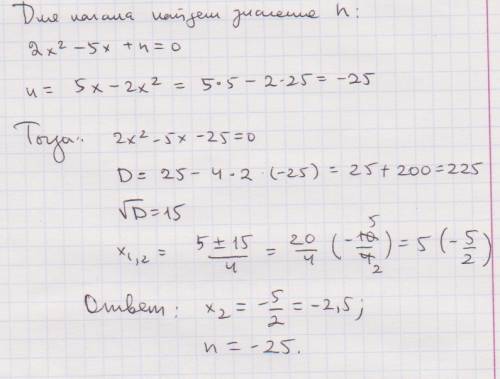 Для начала найдем значение n:
2x² - 5x + n = 0
n = 5x - 2x² = 5·5 - 2·25 = -25
Тогда: 2x² - 5x - 25 = 0
D = 25 - 4·2·(-25) = 25 + 200 = 225
√D = 15
x₁,₂ = (5 ± 15)/4 = 20/4 (-10/4) = 5 (-5/2)
Ответ: x₂ = -5/2 = -2,5;
n = -25.